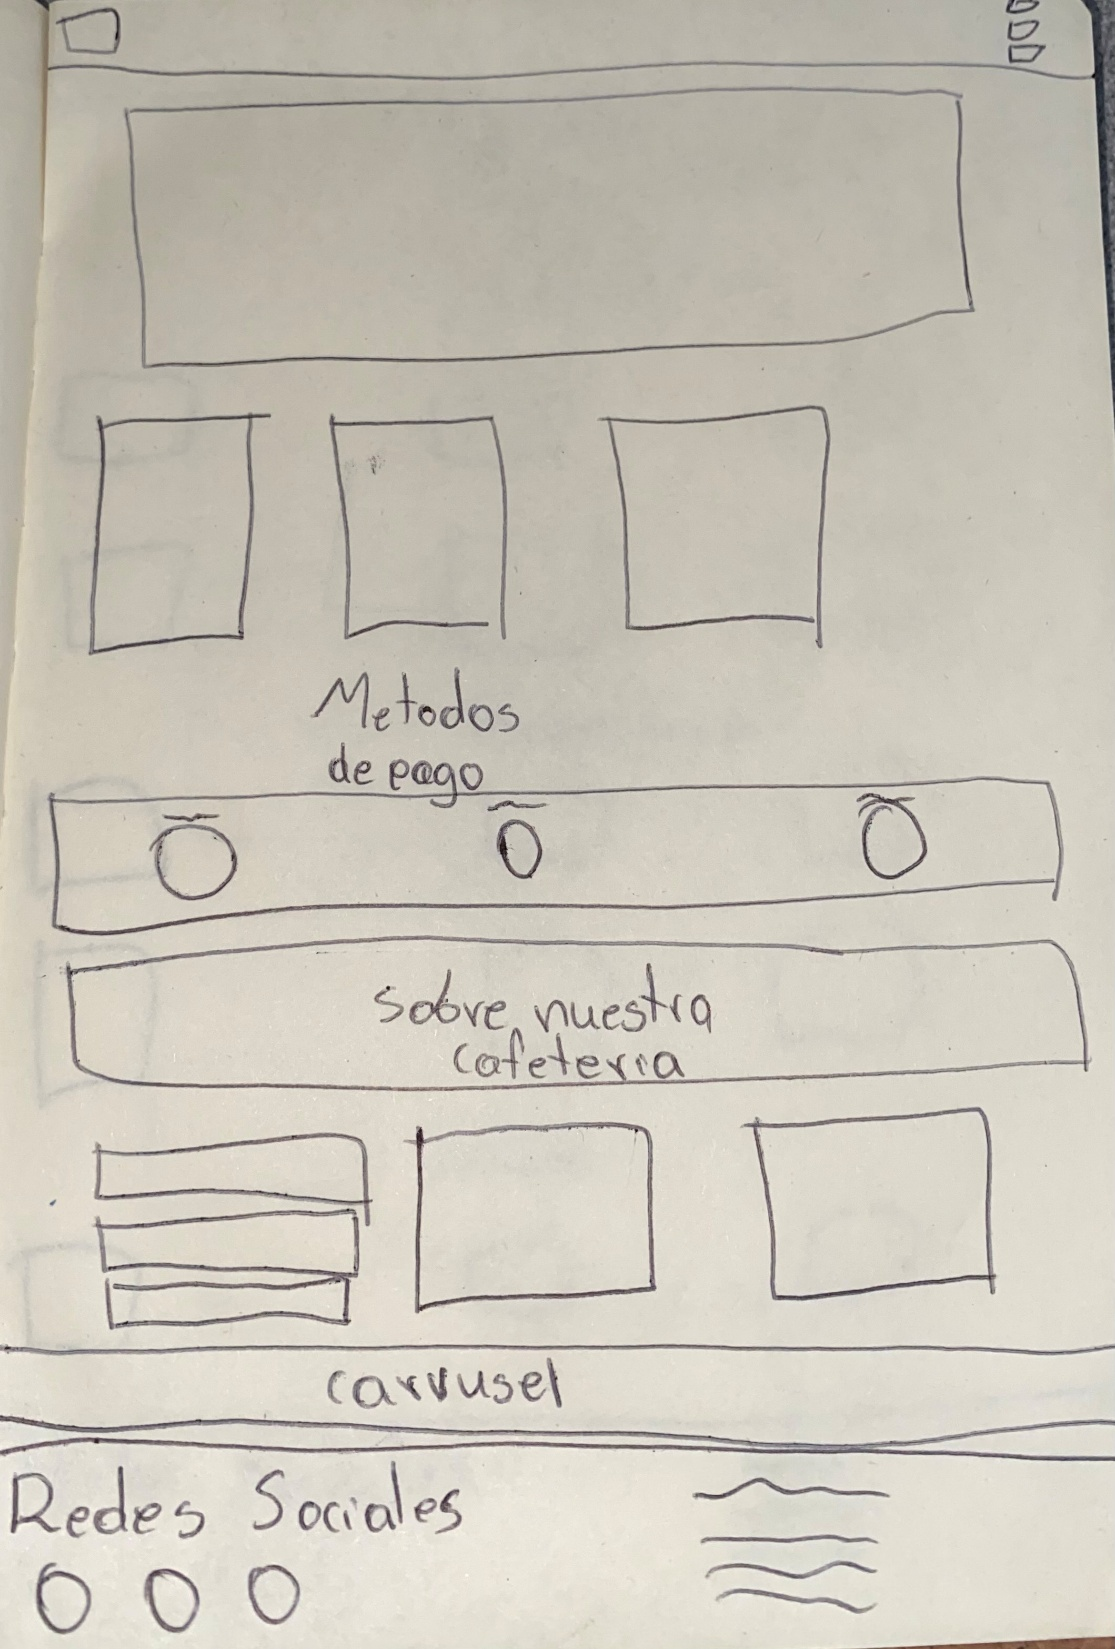 Metodos
de pago
Sobre nuestra
cafeteria
carrusel
Redes Sociales